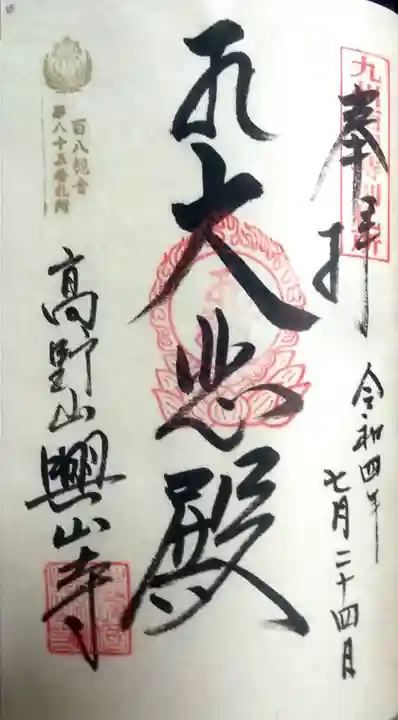 奉拝
令和四年
七月二十四日
大悲殿
百八観音
第八十五番札所
高野山興山寺